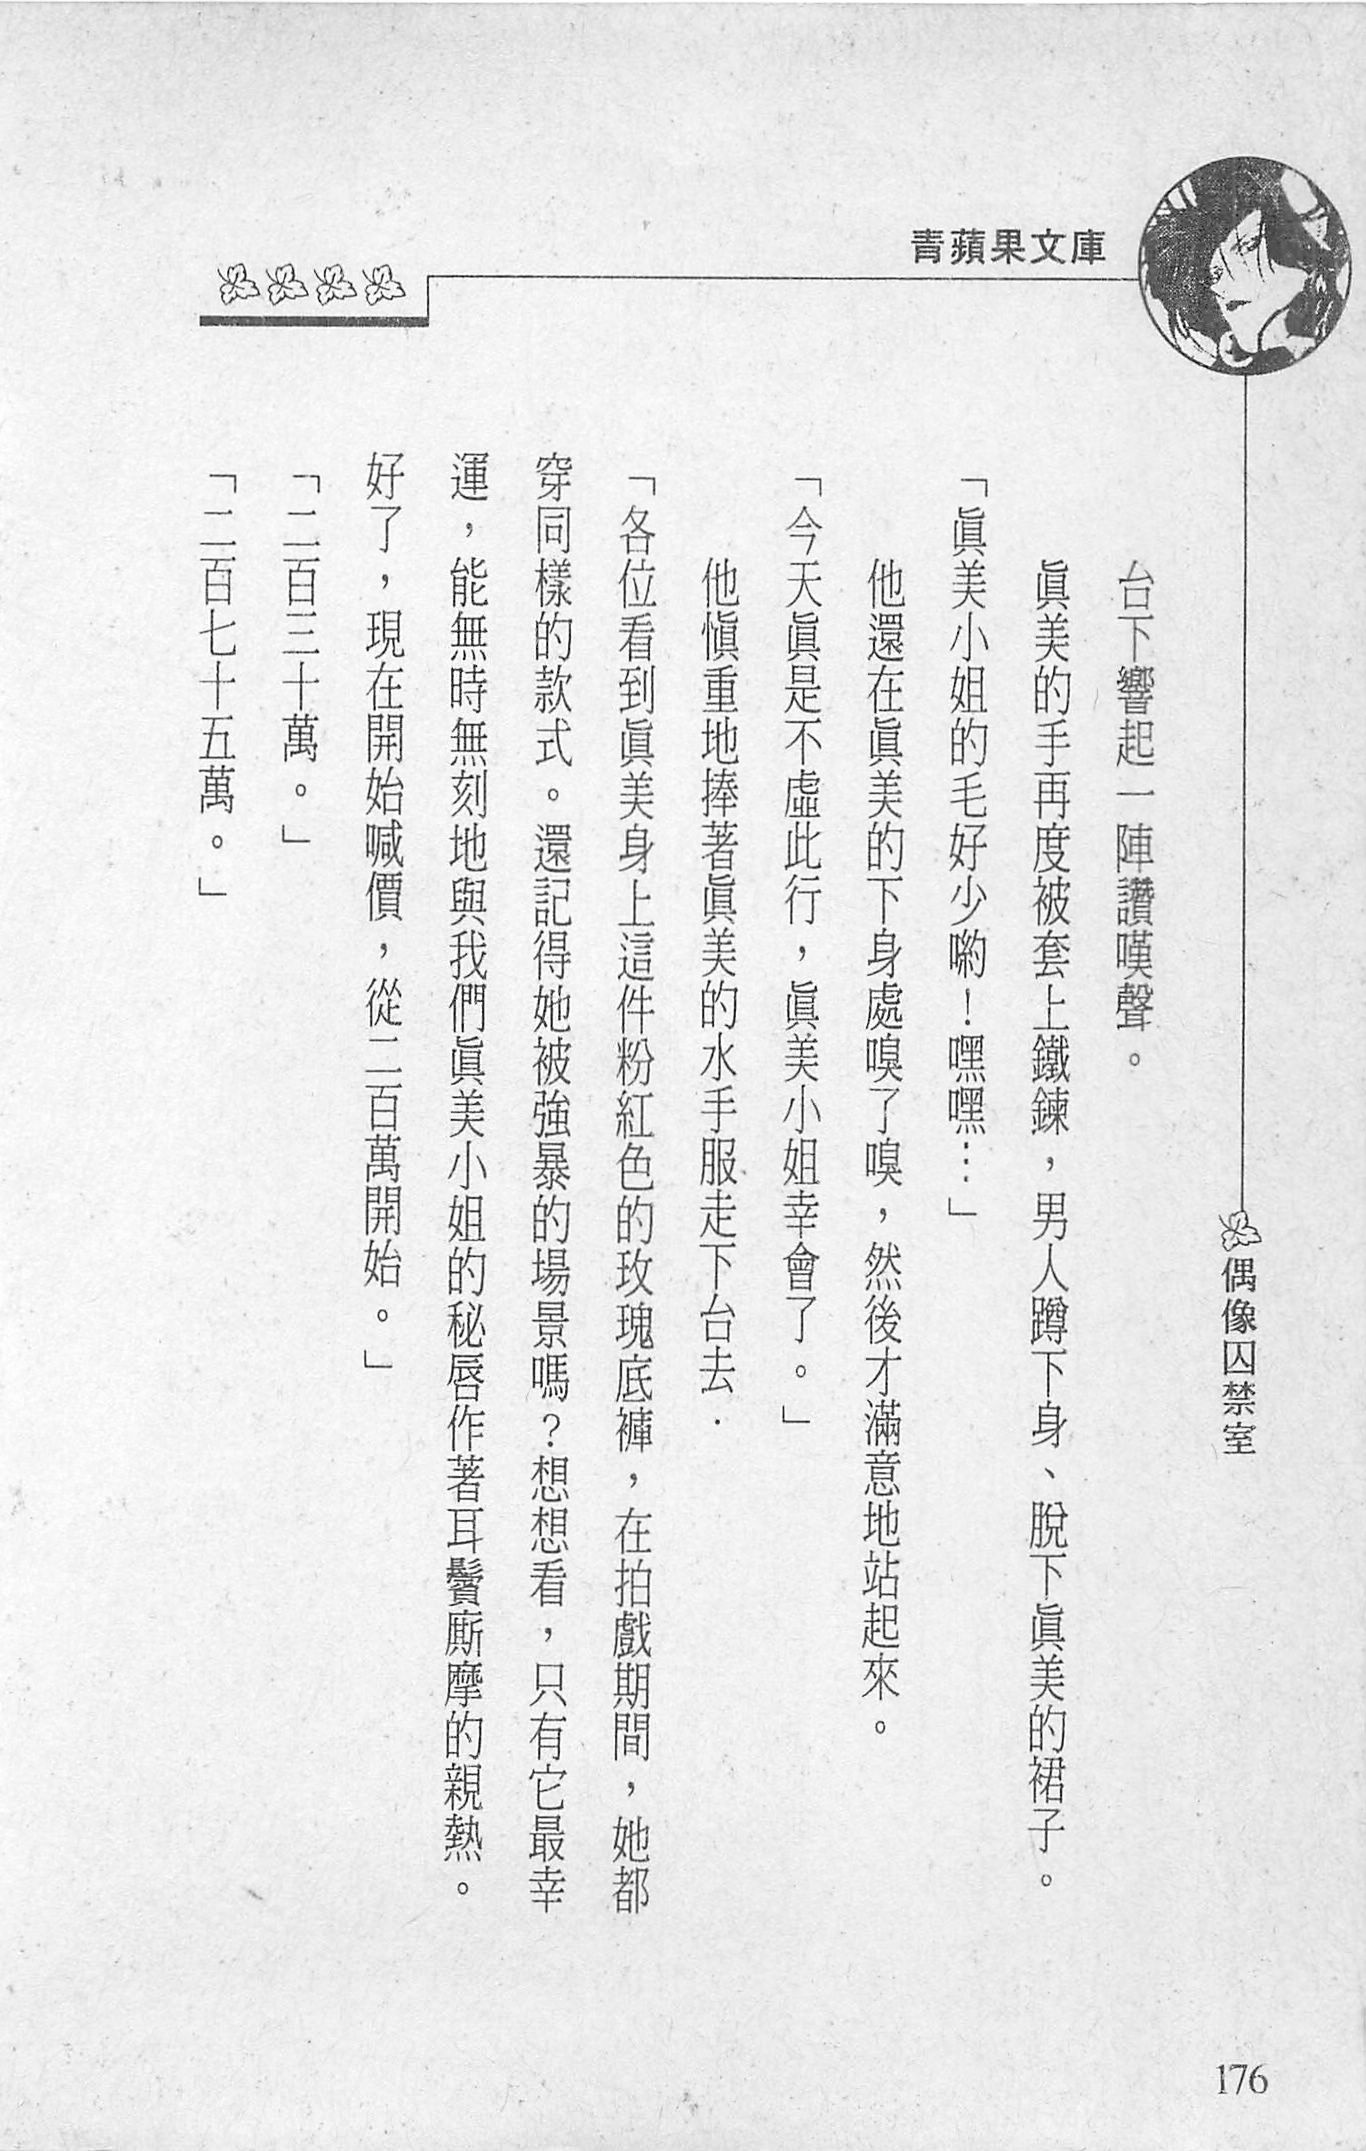 青蘋果文庫
偶像囚禁室
台下響起一陣讚嘆聲。
眞美的手再度被套上鐵鍊，男人蹲下身、脫下眞美的裙子。
「眞美小姐的毛好少喲！嘿嘿…」
他還在眞美的下身處嗅了嗅，然後才滿意地站起來。
「今天眞是不虛此行，眞美小姐幸會了。」
他愼重地捧著眞美的水手服走下台去．
「各位看到眞美身上這件粉紅色的玫瑰底褲，在拍戲期間，她都
穿同樣的款式。還記得她被強暴的場景嗎？想想看，只有它最幸
運，能無時無刻地與我們眞美小姐的秘唇作著耳鬢廝摩的親熱。
好了，現在開始喊價，從二百萬開始。」
「二百三十萬。」
「二百七十五萬。」
176